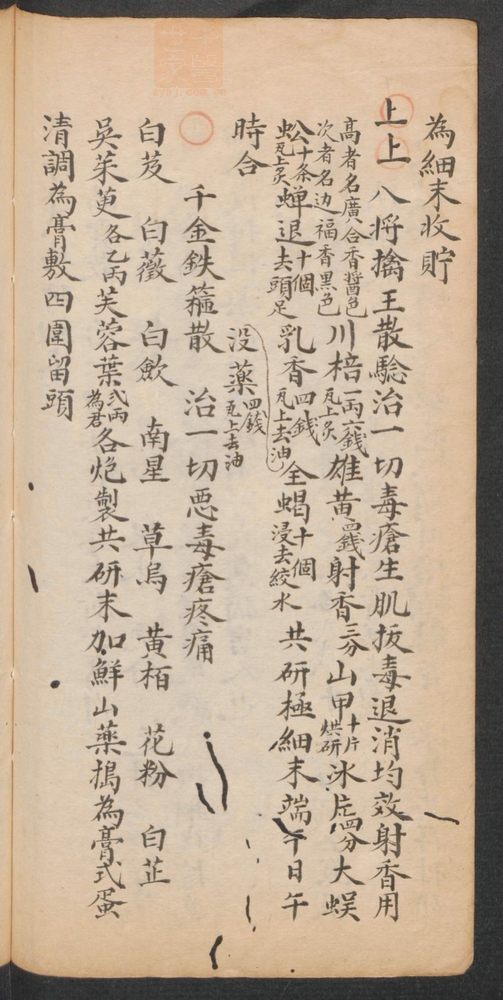 為細末收貯
上上 八将擒王散驗治一切毒瘡生肌拔毒退消均效射香用
高者名廣合香醬色次者名边福香黑色川棓一両六錢瓦上炙雄黄四錢射香三分山甲十片烘研冰片四分大蜈
蚣十条瓦上炙蝉退十個去頭足乳香四錢瓦上去油全蝎十個浸去絞水共研極細末端午日午
時合 没薬四錢瓦上去油
千金鉄箍散 治一切悪毒瘡疼痛
白芨 白薇 白歛 南星 草烏 黄栢 花粉 白芷
吳茱萸各乙両芙蓉葉弍両為君各炮製共研末加鮮山薬搗為膏式蛋
清調為膏敷四圍留頭